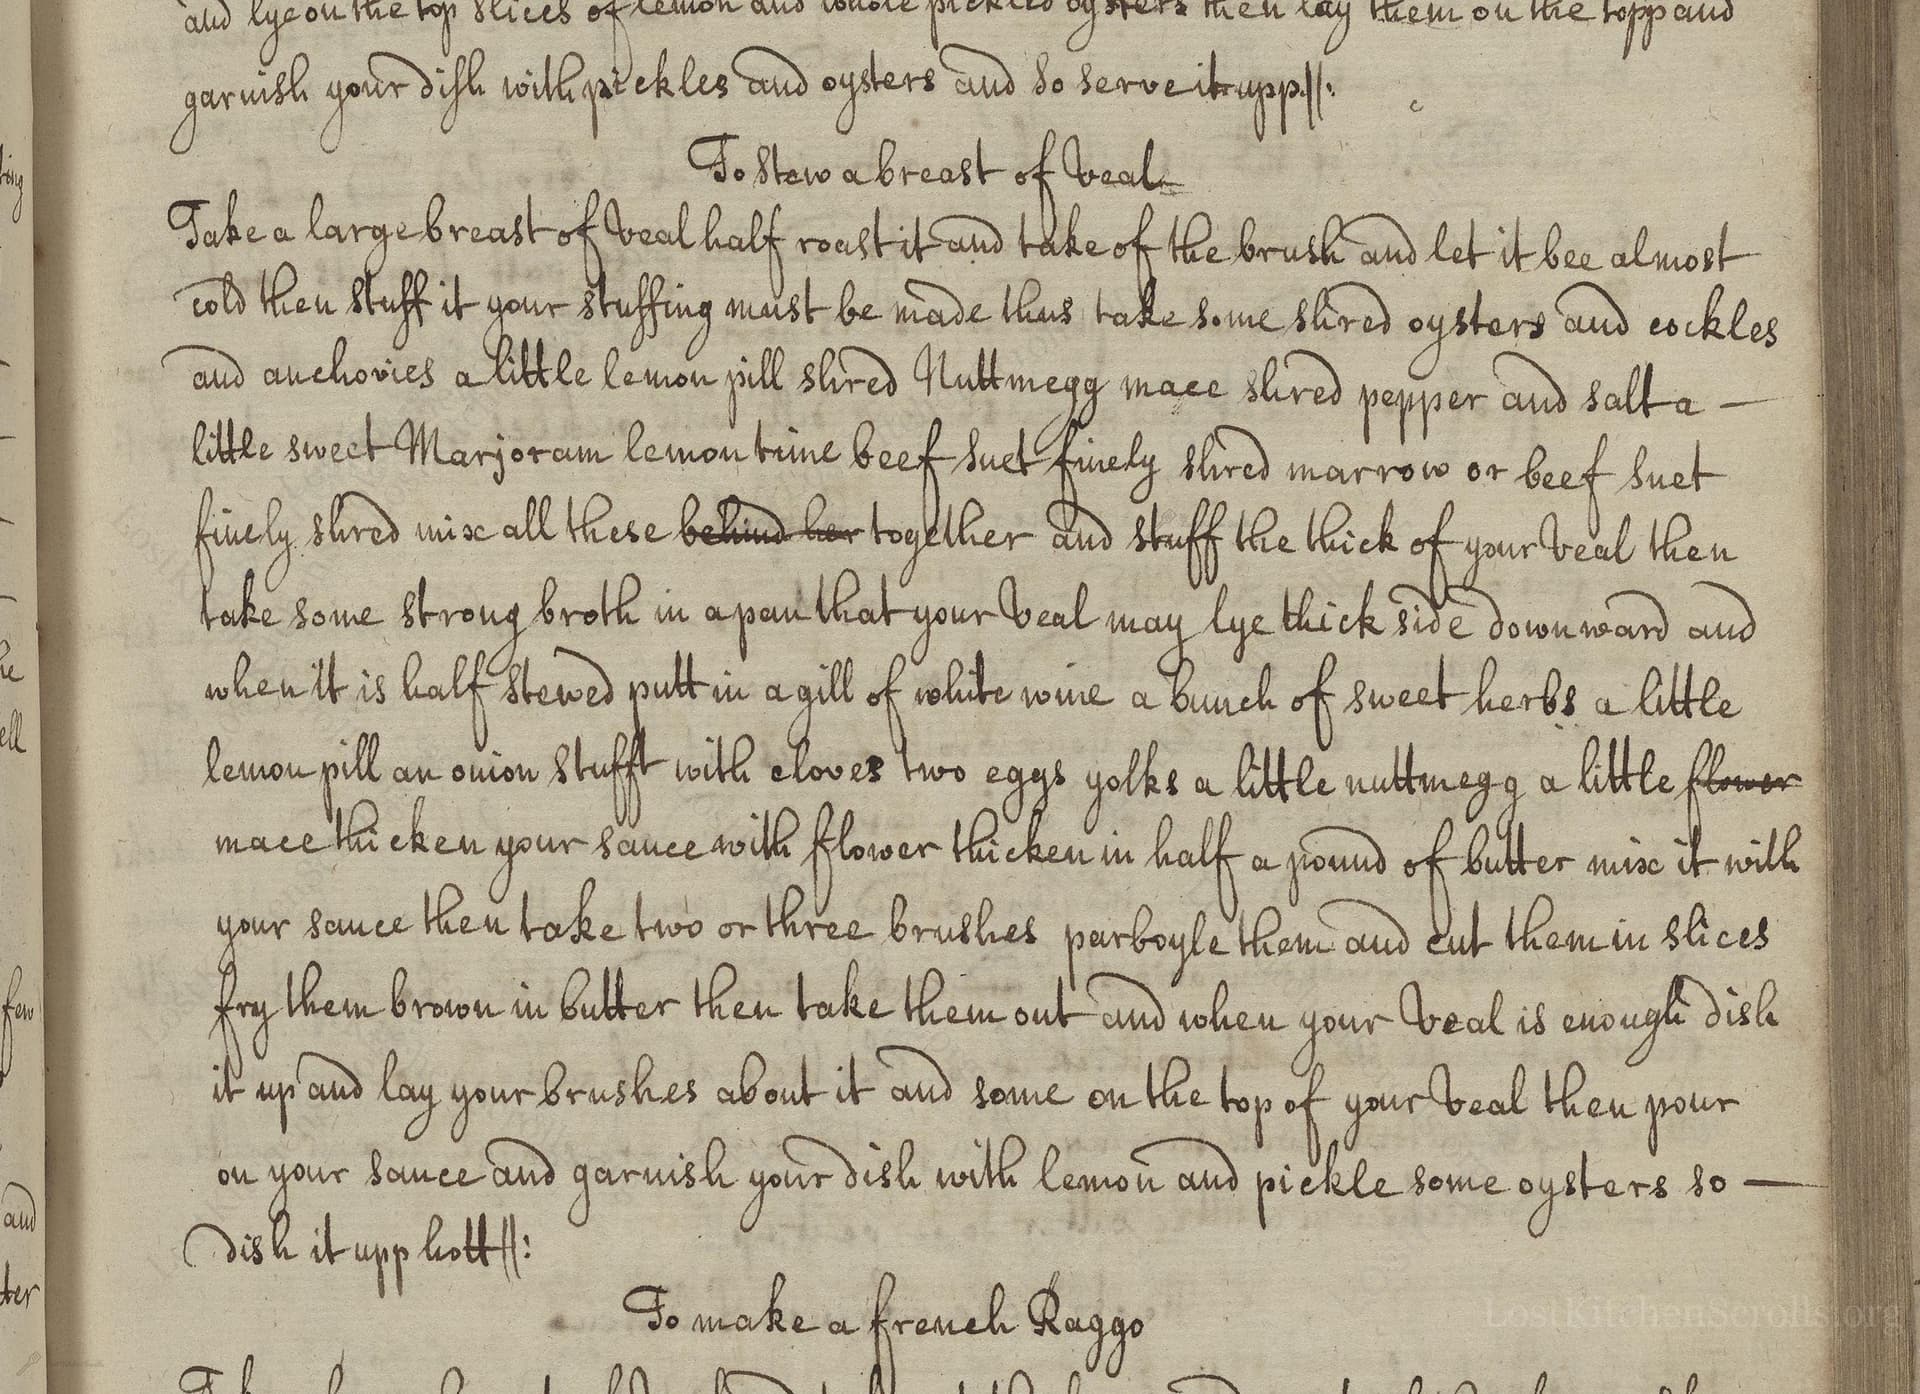 and lye on the top slices of lemon and whole pickled oysters then lay them on the topp and
garnish your dish with pickles and oysters and so serve it upp//:
To stew a breast of Veal
Take a large breast of Veal half roast it and take of the brush and let it bee almost
cold then stuff it your stuffing must be made thus take some shred oysters and cockles
and anchovies a little lemon pill shred Nuttmegg mace shred pepper and salt a —
little sweet Marjoram lemon time beef suet finely shred marrow or beef suet
finely shred mix all these behind her together and stuff the thick of your Veal then
take some strong broth in a pan that your Veal may lye thick side downward and
when it is half stewed putt in a gill of white wine a bunch of sweet herbs a little
lemon pill an onion stufft with cloves two eggs yolks a little nuttmegg a little flower
mace thicken your sauce with flower thicken in half a pound of butter mix it with
your sauce then take two or three brushes parboyle them and cut them in slices
fry them brown in butter then take them out and when your Veal is enough dish
it up and lay your brushes about it and some on the top of your Veal then pour
on your sauce and garnish your dish with lemon and pickle some oysters so —
dish it upp hott//:
To make a french Raggo
ting
he
ell
few
and
ter
LostKitchenScrolls.org